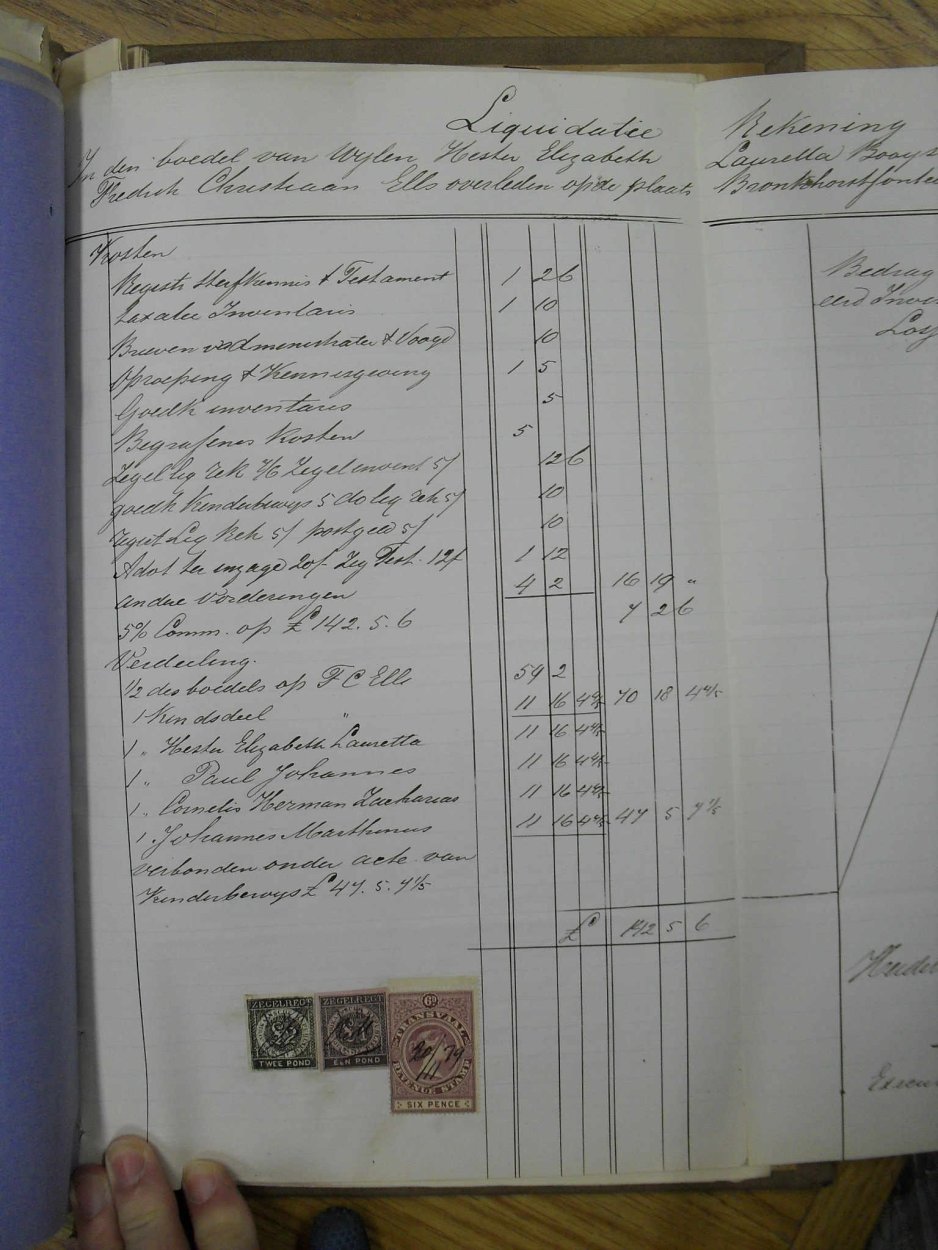 Liquidatie Rekening
In den boedel van Wylen Hester Elizabeth Lauretta Booys
Fredrik Christiaan Ells overleden op de plaats Bronkhorstfontei
Kosten
Registr sterfkennis & Testament 1 2 6
taxatie Inventaris 1 10
Brieven v administratie & Voogd 10
Oproeping & Kennisgeving 1 5
Goedk inventaris 5
Begrafenis Kosten 5
Zegel liq rek 7/6 Zegel invent 5/ 12 6
goedk Kinderbewys 5 do liq rek 5/ 10
Liq Rek 5/ postgeld 5/ 10
Advt ter inzage 20/ Zeg Test. 12/ 1 12
andere Vorderingen 4 2 16 19 "
5% Comm. op £142.5.6 7 2 6
Verdeeling.
1/2 des boedels op F C Ells 59 2
1 Kindsdeel " 11 16 4 4/5 70 18 4 4/5
1 " Hester Elizabeth Lauretta 11 16 4 4/5
1 " Paul Johannes 11 16 4 4/5
1 " Cornelis Herman Zacharias 11 16 4 4/5
1 " Johannes Marthinus 11 16 4 4/5 47 5 7 1/5
verbonden onder acte van
Kinderbewys £47.5.7 1/5
£ 142 5 6
Bedrag
eerd Inve
ZEGELREGT
TWEE POND
ZEGELREGT
EEN POND
6D
TRANSVAAL
20/79
III
REVENUE STAMP
SIX PENCE
Execu